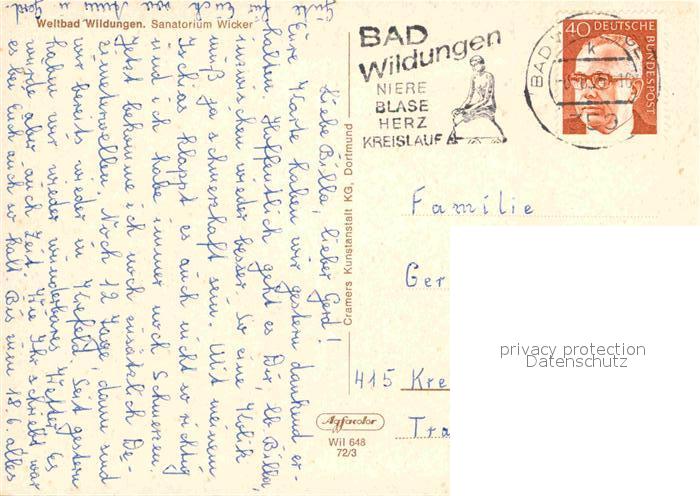 Weltbad Wildungen. Sanatorium Wicker
BAD
Wildungen
NIERE
BLASE
HERZ
KREISLAUF
BAD
k
40 DEUTSCHE
BUNDESPOST
Cramers Kunstanstalt KG, Dortmund
Agfacolor
Wil 648
72/3
Familie
Ger
415 Kre
Tra
privacy protection
Datenschutz
Liebe Billa, lieber Gerd!
Eure Karte haben wir gestern dankend er-
halten. Hoffentlich geht es Dir, lb Billa,
inzwischen wieder besser. So eine Kolik
muß ja schmerzhaft sein. Mit meinem
Ischias klappt es auch nicht so richtig
und ich habe immer noch Schmerzen.
Jetzt bekomme ich noch zusätzlich De-
zimeterwellen. Noch 12 Tage, dann sind
wir bereits wieder in Krefeld. Seit gestern
haben wir wieder wunderbares Wetter. Es
wurde aber auch Zeit. Wie Ihr schreibt war
es bei Euch auch so kalt. Bis zum 18.6. alles
Gute